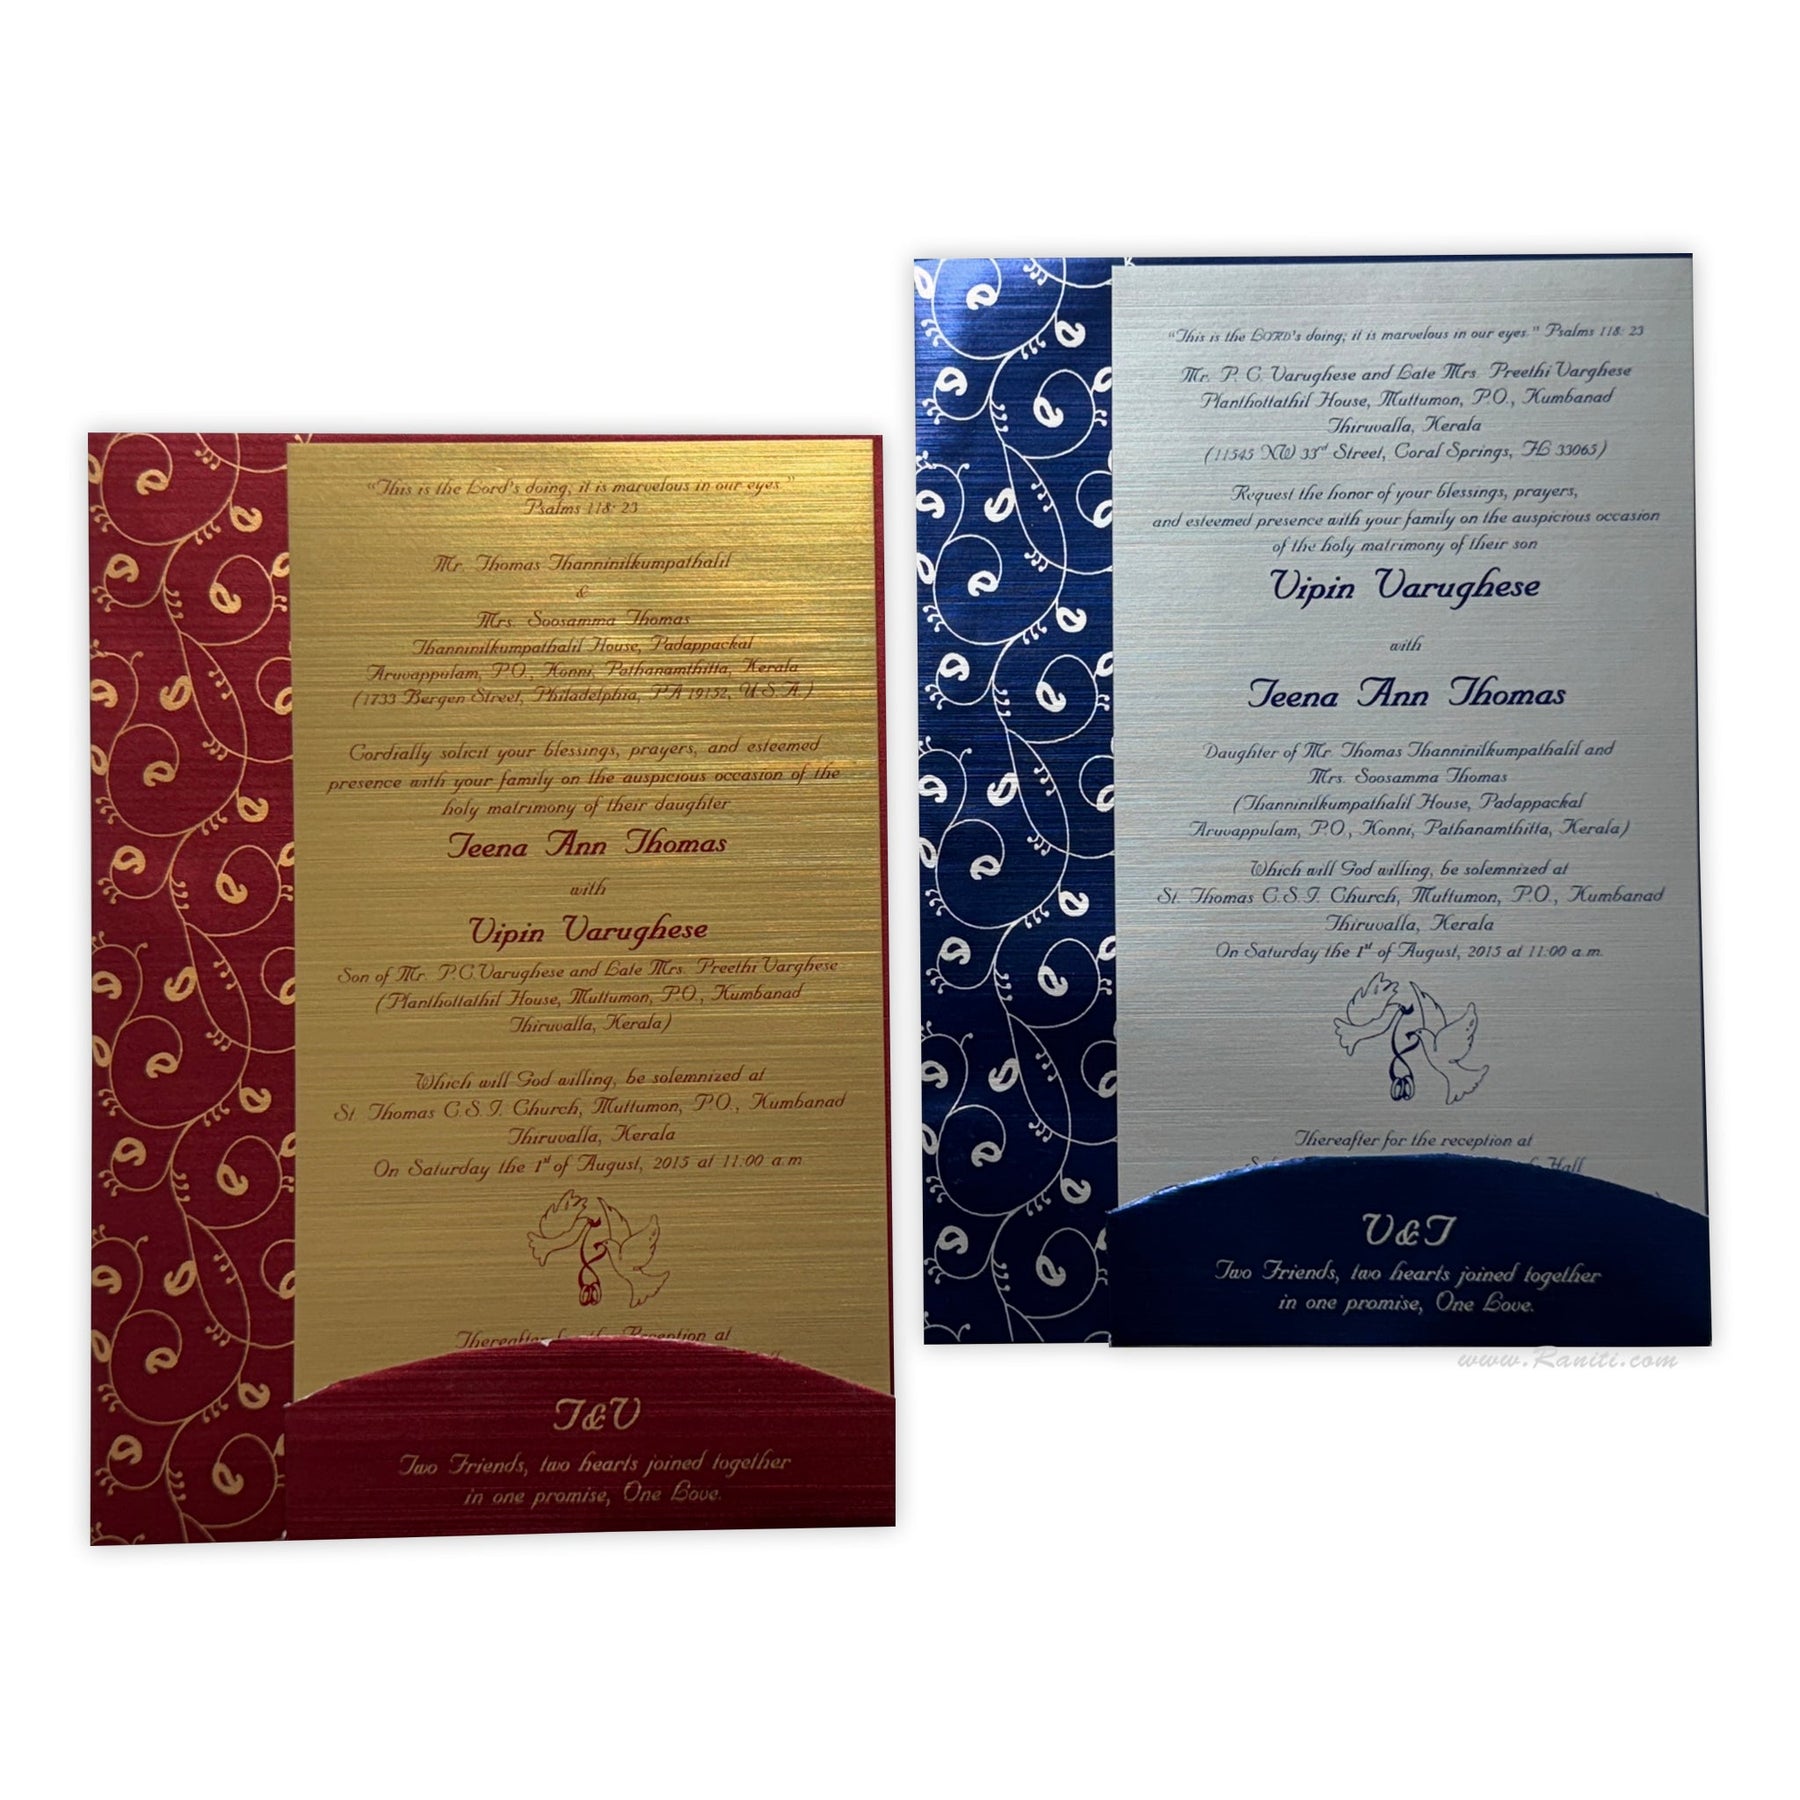 “This is the Lord's doing; it is marvelous in our eyes.”
Psalms 118: 23
Mr. Thomas Thanninilkumpathalil
&
Mrs. Soosamma Thomas
Thanninilkumpathalil House, Padappackal
Aruvappulam, P.O., Konni, Pathanamthitta, Kerala
(1733 Bergen Street, Philadelphia, PA 19152, U.S.A.)
Cordially solicit your blessings, prayers, and esteemed
presence with your family on the auspicious occasion of the
holy matrimony of their daughter
Teena Ann Thomas
with
Vipin Varughese
Son of Mr. P.C.Varughese and Late Mrs. Preethi Varghese
(Planthottathil House, Muttumon, P.O., Kumbanad
Thiruvalla, Kerala)
Which will God willing, be solemnized at
St. Thomas C.S.I. Church, Muttumon, P.O., Kumbanad
Thiruvalla, Kerala
On Saturday the 1st of August, 2015 at 11:00 a.m.
Thereafter for the Reception at
T&V
Two Friends, two hearts joined together
in one promise, One Love.
“This is the LORD's doing; it is marvelous in our eyes.” Psalms 118: 23
Mr. P. C. Varughese and Late Mrs. Preethi Varghese
Planthottathil House, Muttumon, P.O., Kumbanad
Thiruvalla, Kerala
(11545 NW 33rd Street, Coral Springs, FL 33065)
Request the honor of your blessings, prayers,
and esteemed presence with your family on the auspicious occasion
of the holy matrimony of their son
Vipin Varughese
with
Teena Ann Thomas
Daughter of Mr. Thomas Thanninilkumpathalil and
Mrs. Soosamma Thomas
(Thanninilkumpathalil House, Padappackal
Aruvappulam, P.O., Konni, Pathanamthitta, Kerala)
Which will God willing, be solemnized at
St. Thomas C.S.I. Church, Muttumon, P.O., Kumbanad
Thiruvalla, Kerala
On Saturday the 1st of August, 2015 at 11:00 a.m.
Thereafter for the reception at
Hall
V&T
Two Friends, two hearts joined together
in one promise, One Love.
www.Raniti.com